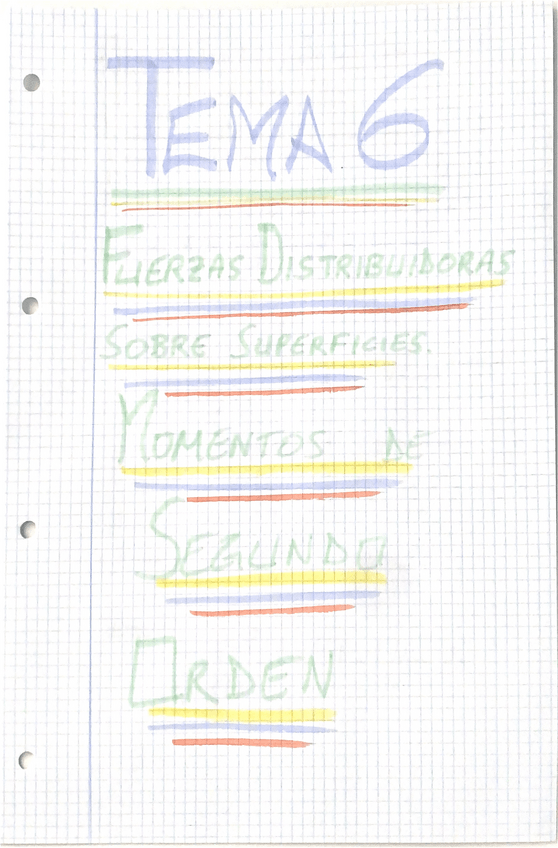 TEMA 6
FUERZAS DISTRIBUIDORAS
SOBRE SUPERFICIES.
MOMENTOS DE
SEGUNDO
ORDEN